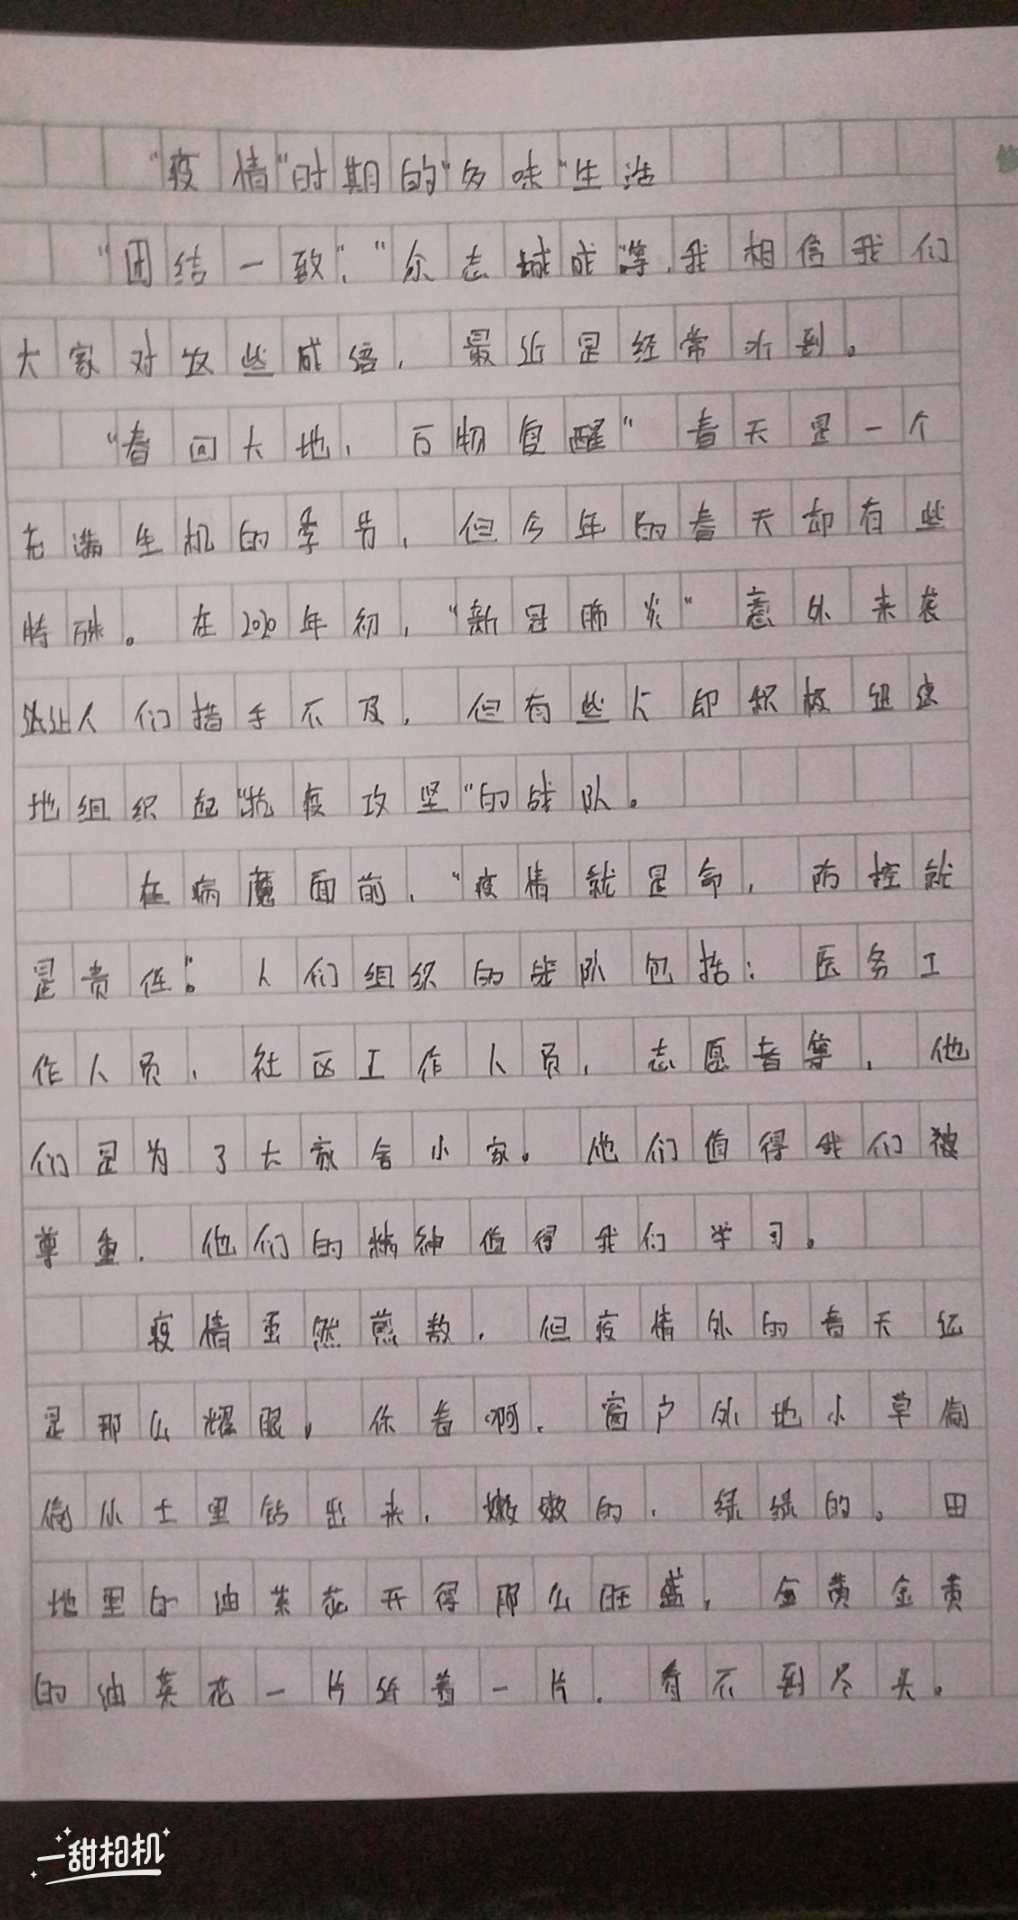 "疫情"时期的"多味"生活
"团结一致"、"众志城成"等,我相信我们
大家对这些成语,最近是经常听到。
"春回大地,万物复醒"春天是一个
充满生机的季节,但今年的春天却有些
特殊。在2020年初,"新冠肺炎"意外来袭
让人们措手不及,但有些人即积极迅速
地组织起"抗疫攻坚"的战队。
在病魔面前,"疫情就是命,防控就
是责任"。人们组织的战队包括:医务工
作人员、社区工作人员,志愿者等,他
们是为了大家舍小家。他们值得我们被
尊重,他们的精神值得我们学习。
疫情虽然煎熬,但疫情外的春天
是那么耀眼,你看啊,窗户外地小草偷
偷从土里钻出来,嫩嫩的,绿绿的。田
地里的油菜花开得那么旺盛,金黄金黄
的油菜花一片连着一片,看不到尽头。
一甜相机